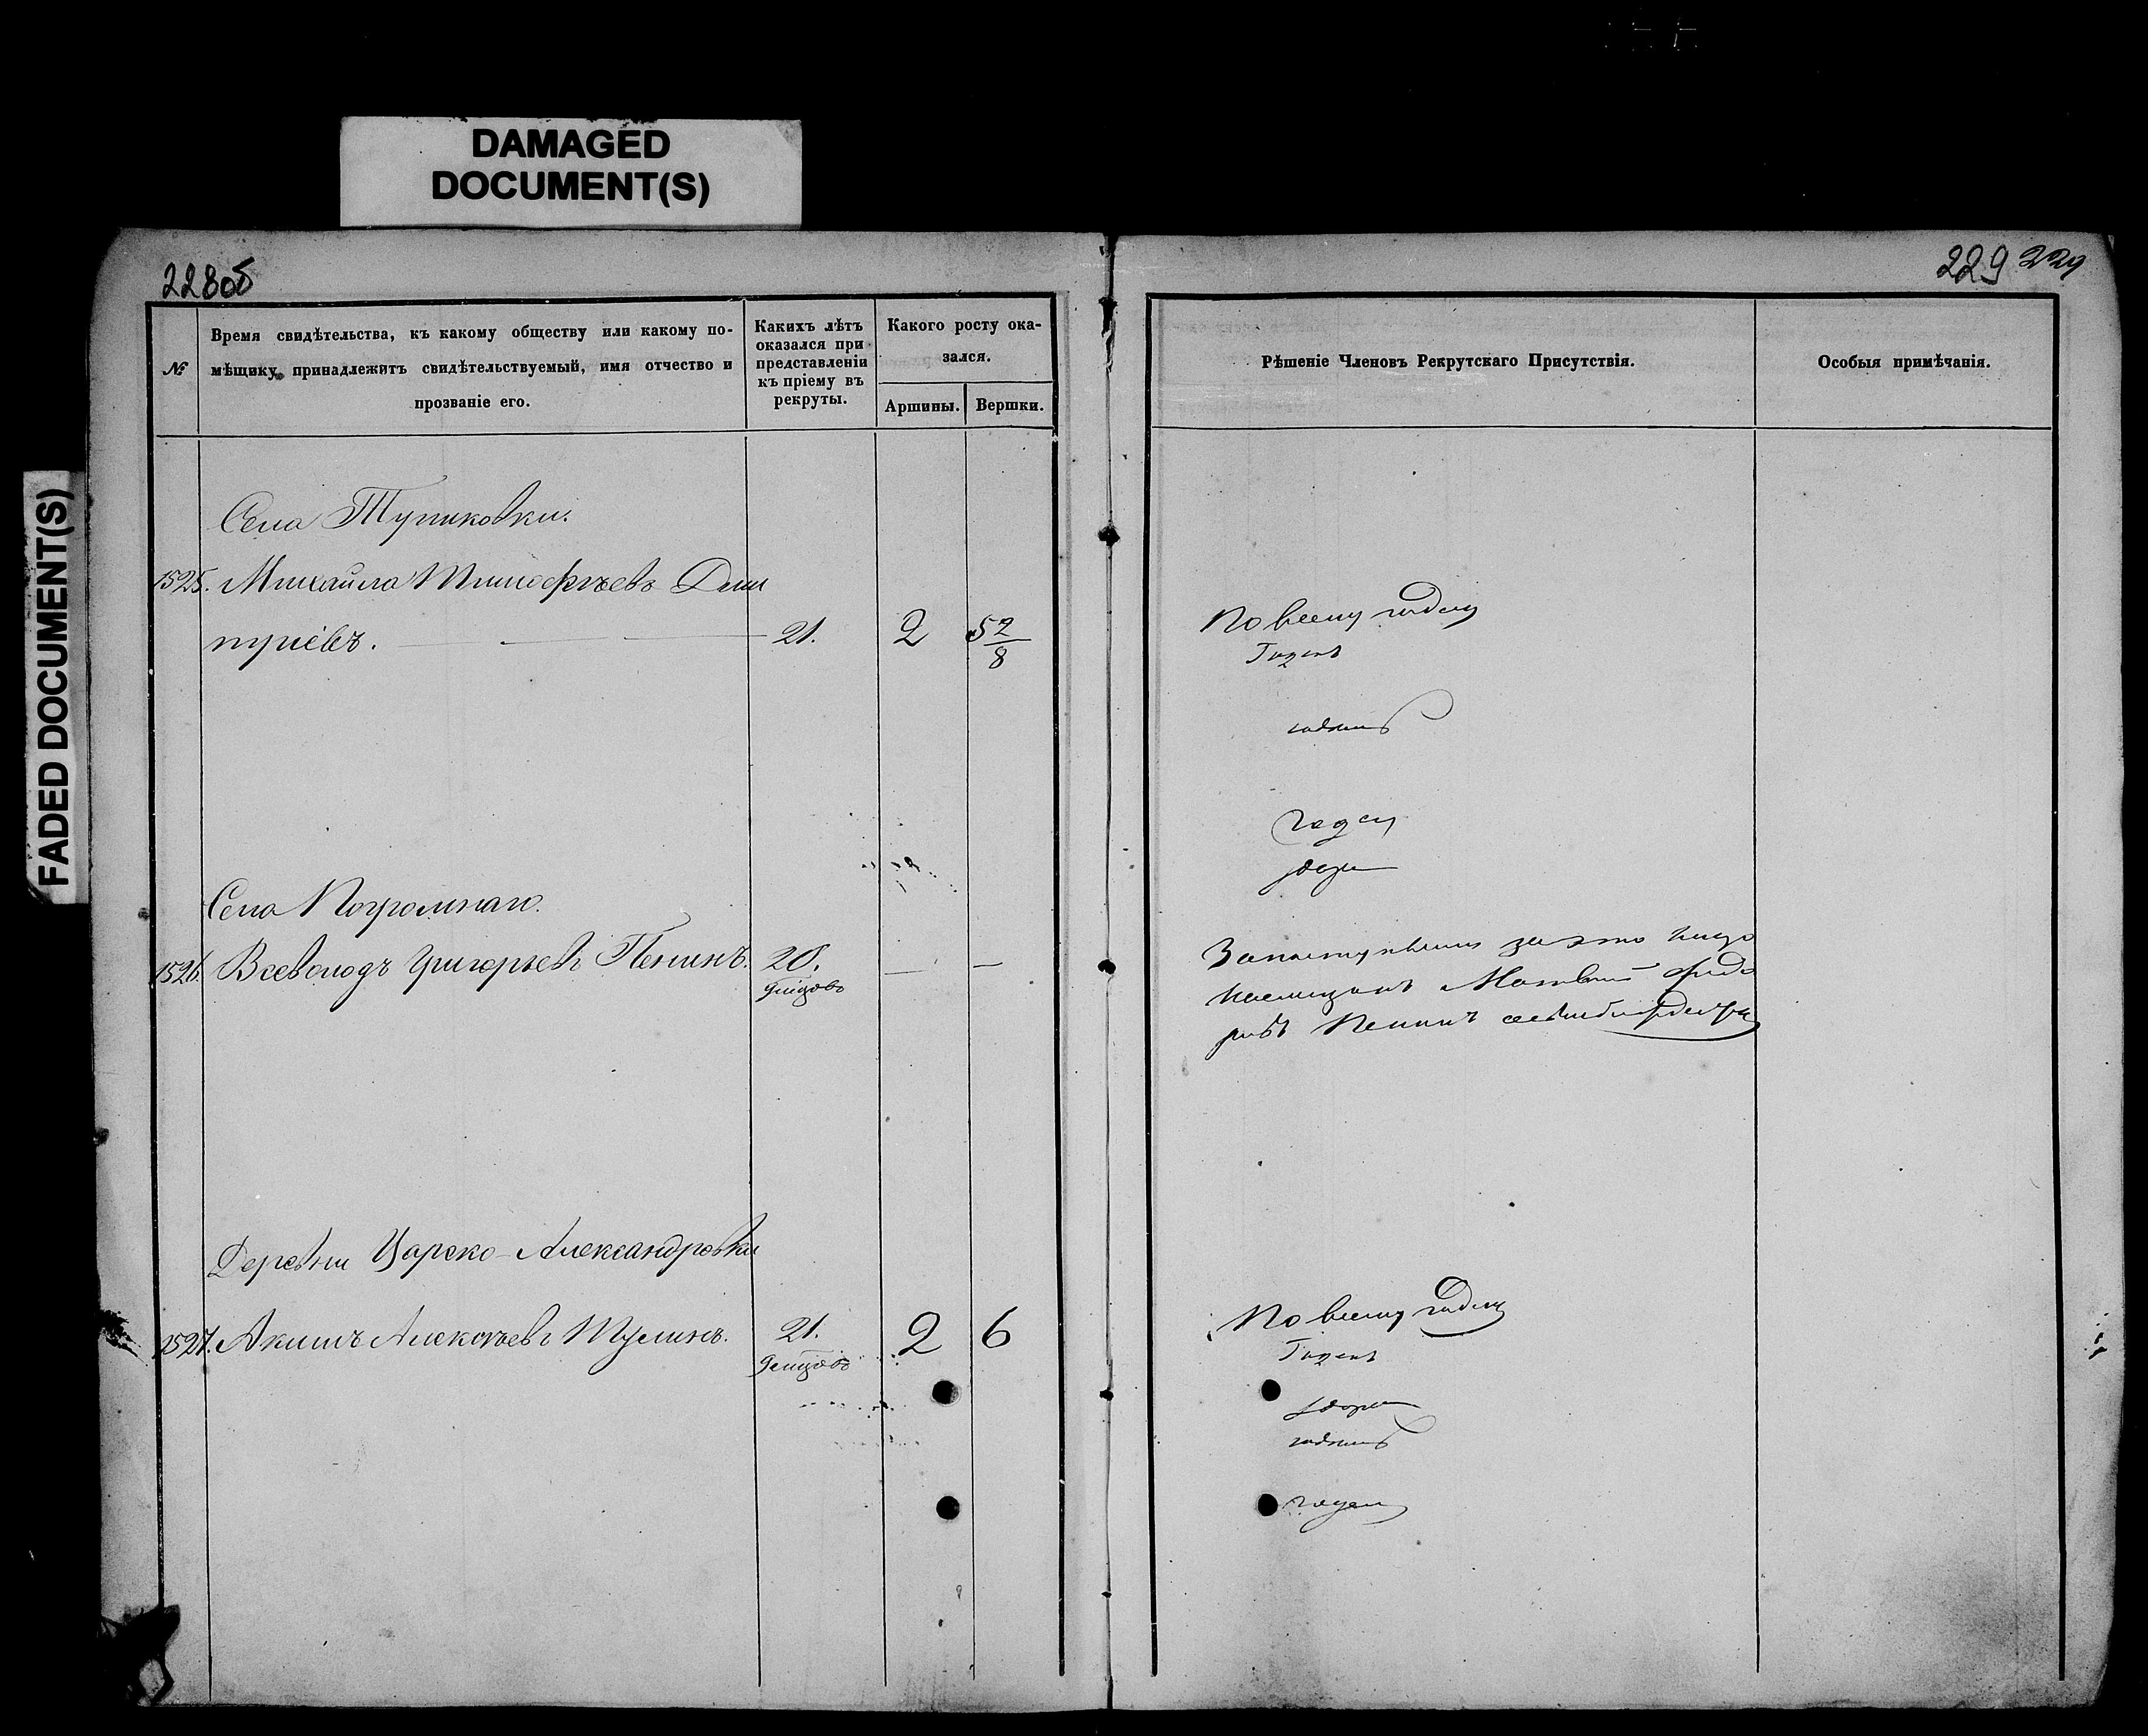 DAMAGED
DOCUMENT(S)
FADED DOCUMENT(S)
228об
229 229
№
Время свидѣтельства, къ какому обществу или какому по-
мѣщику принадлежитъ свидѣтельствуемый, имя отчество и
прозваніе его.
Какихъ лѣтъ
оказался при
представленіи
къ пріему въ
рекруты.
Какого росту ока-
зался.
Аршины.
Вершки.
Рѣшеніе Членовъ Рекрутскаго Присутствія.
Особыя примѣчанія.
Села Тупиковки.
1525. Михайла Тимофѣевъ
21. 2 5 2/8
По всему годенъ
Годенъ
годенъ
годен
Села Погромнаго.
1526. Всеволодъ Григорьевъ Пенинъ. 20. — —
9 мѣсяцовъ
за это лицо
Матвей Федо
ровъ Пенинъ
Деревни Царско-Александровки
1527. Акимъ Алексѣевъ 21. 2 6
9 мѣсяцовъ
По всему годенъ
Годенъ
годенъ
годен